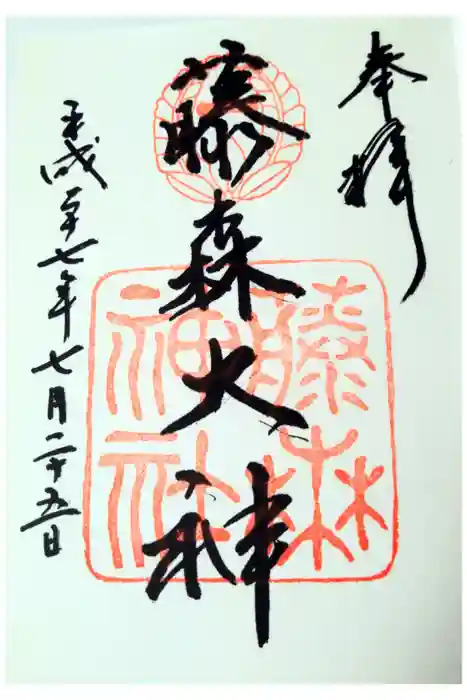 奉拝
藤森大神
藤森
神社
平成二十七年七月二十五日